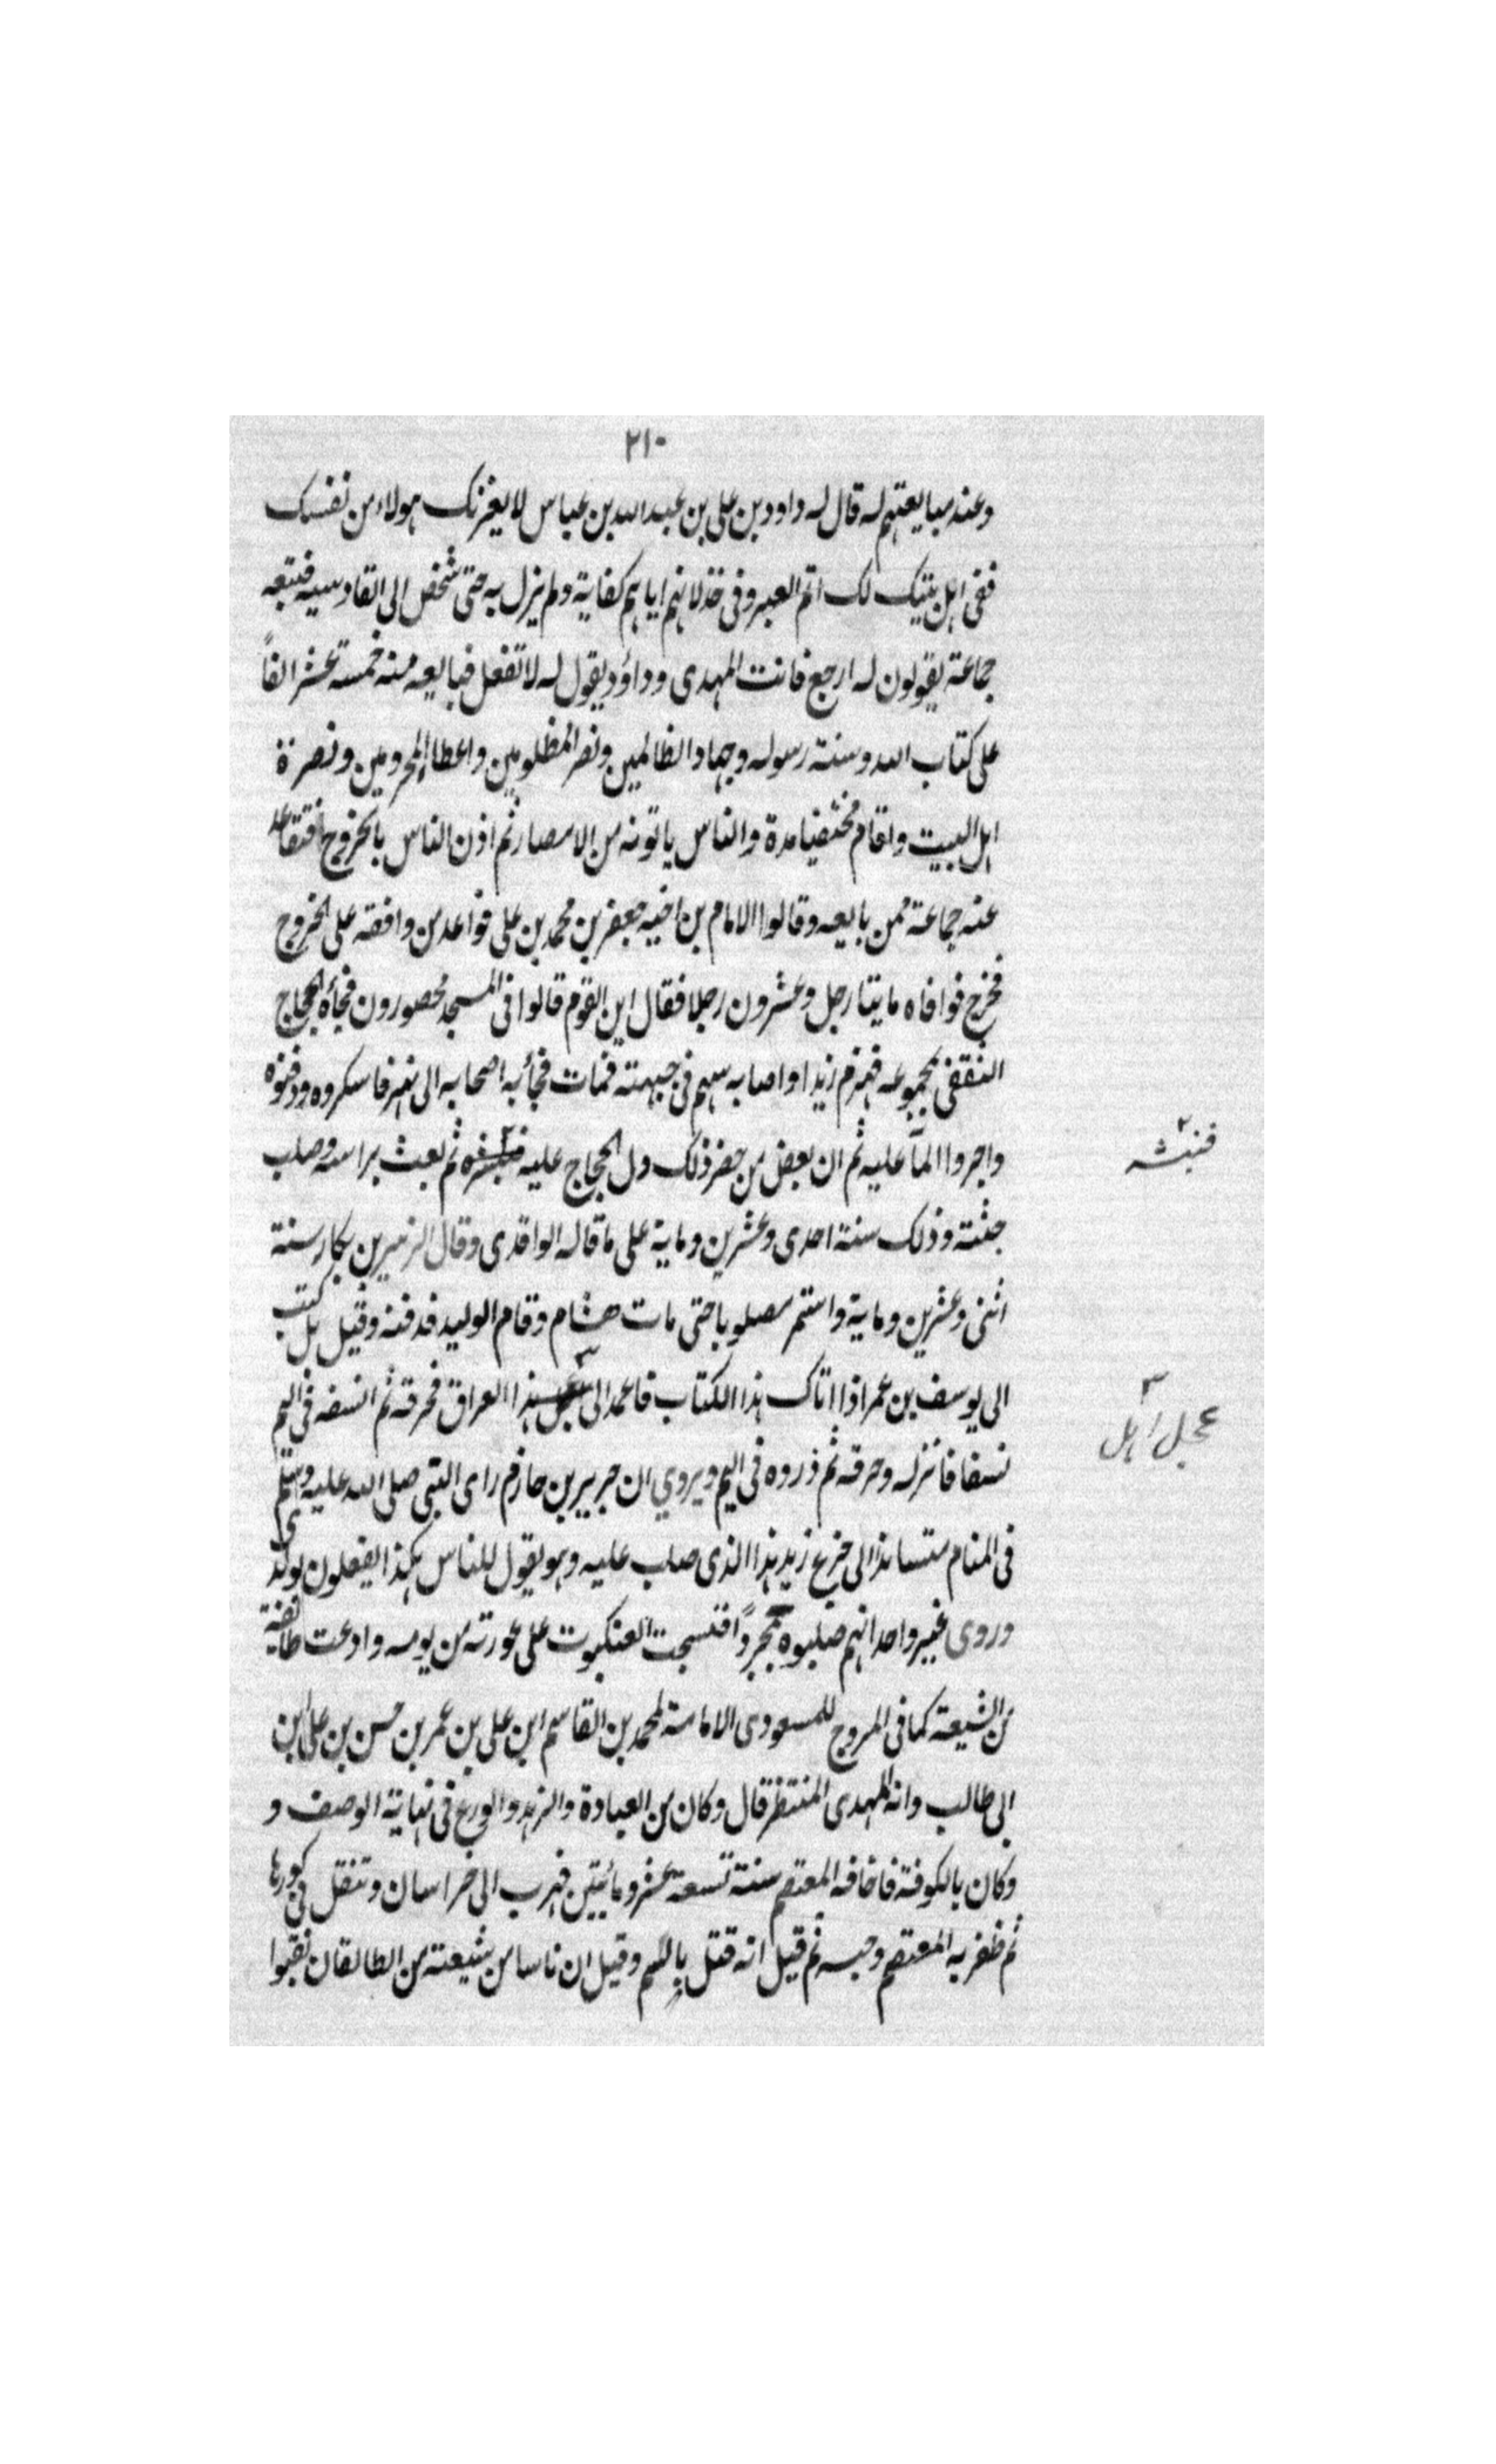 ٢١٠
وعند مبايعتهم له قال له داود بن على بن عبد الله بن عباس لا يغرنك هولاء من نفسك
ففى اهل بيتك لك اتم العبر وفى خذلانهم اياهم كفاية ولم يزل به حتى شخص الى القادسيه فتبعه
جماعة يقولون له ارجع فانت المهدى وداؤد يقول له لا تفعل فبايعه منه خمسة عشر الفاً
على كتاب الله وسنة رسوله وجهاد الظالمين ونصر المظلومين واعطا المحرومين ونصرة
اهل البيت واقام مختفيا مدة والناس ياتونه من الامصار ثم اذن الناس بالخروج فتقاعد
عنه جماعة ممن بايعه وقالوا الامام بن اخيه جعفر بن محمد بن على فواعد من وافقه على الخروج
فخرج فوافاه مايتا رجل وعشرون رجلا فقال اين القوم قالوا فى المسجد محصورون فجأه الحجاج
الثقفى بجموعه فهزم زيدا واصابه سهم فى جبهته فمات فجأ به اصحابه الى نهر فاسكروه ودفنوه
واجروا المآ عليه ثم ان بعض من حضر ذلك دل الحجاج عليه ثم بعث براسه وصلب
فنبشه
جثته وذلك سنة احدى وعشرين وماية على ما قاله الواقدى وقال الزبير بن بكار سنة
اثنى وعشرين وماية واستمر مصلوبا حتى مات هشام وقام الوليد فدفنه وقيل بل كتب
الى يوسف بن عمر اذا اتاك هذا الكتاب فاعمد الى هذا العراق فحرقه ثم انسفه فى اليم
عجل اهل
نسفا فانزله وحرقه ثم ذروه فى اليم ويروي ان جرير بن حازم راى النبى صلى الله عليه وسلم
فى المنام متساندا الى جزع زيد هذا الذى صلب عليه وهو يقول للناس هكذا يفعلون بولدى
وروى غير واحد انهم صلبوه مجرداً فنسجت العنكبوت على عورته من يومه وادعت طائفة
من الشيعة كما فى المروج للمسعودى الامامة لمحمد بن القاسم ابن على بن عمر بن حسن بن على ابن
ابى طالب وانه المهدى المنتظر قال وكان من العبادة والزهد والورع فى نهاية الوصف و
وكان بالكوفة فاخافه المعتصم سنة تسعة عشر ومائتين فهرب الى خراسان وتنقل فى كورها
ثم ظفر به المعتصم وحبسه ثم قيل انه قتل بالسم وقيل ان ناسا من شيعته من الطالقان نقبوا